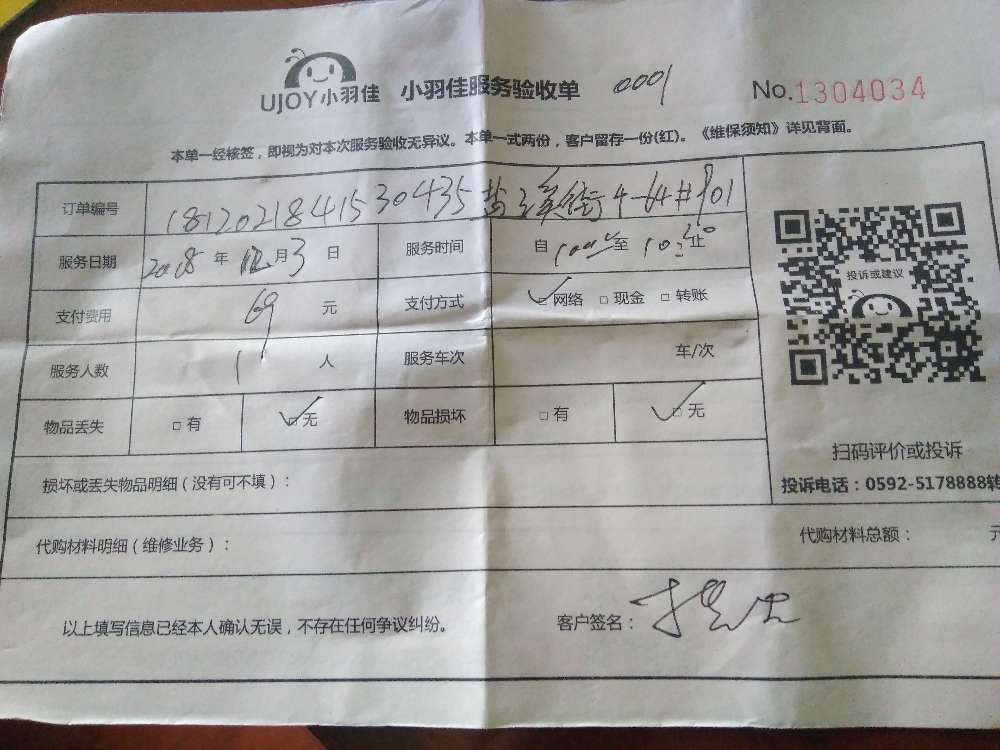 UJOY小羽佳 小羽佳服务验收单 0001 No.1304034
本单一经核签，即视为对本次服务验收无异议。本单一式两份，客户留存一份(红)。《维保须知》详见背面。
订单编号 1812021841530435 街4-64#901
服务日期 2018年12月3日 服务时间 自 至 10:30止
支付费用 69 元 支付方式 ☑网络 □现金 □转账
服务人数 1 人 服务车次 车/次
物品丢失 □有 ☑无 物品损坏 □有 ☑无
损坏或丢失物品明细（没有可不填）：
代购材料明细（维修业务）： 代购材料总额： 元
以上填写信息已经本人确认无误，不存在任何争议纠纷。 客户签名：
投诉或建议
扫码评价或投诉
投诉电话：0592-5178888转